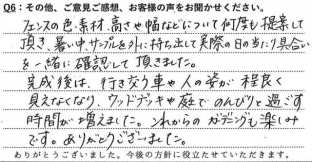 Q6：その他、ご意見ご感想、お客様の声をお聞かせください。
フェンスの色・素材、高さや幅などについて何度も提案して
頂き、暑い中、サンプルを外に持ち出して実際の日の当たり具合い
を一緒に確認して頂きました。
完成後は、行き交う車や人の姿が程良く
見えなくなり、ウッドデッキや庭でのんびりと過ごす
時間が増えました。これからのガーデニングも楽しみ
です。ありがとうございました。
ありがとうございました。今後の方針に役立たせていただきます。